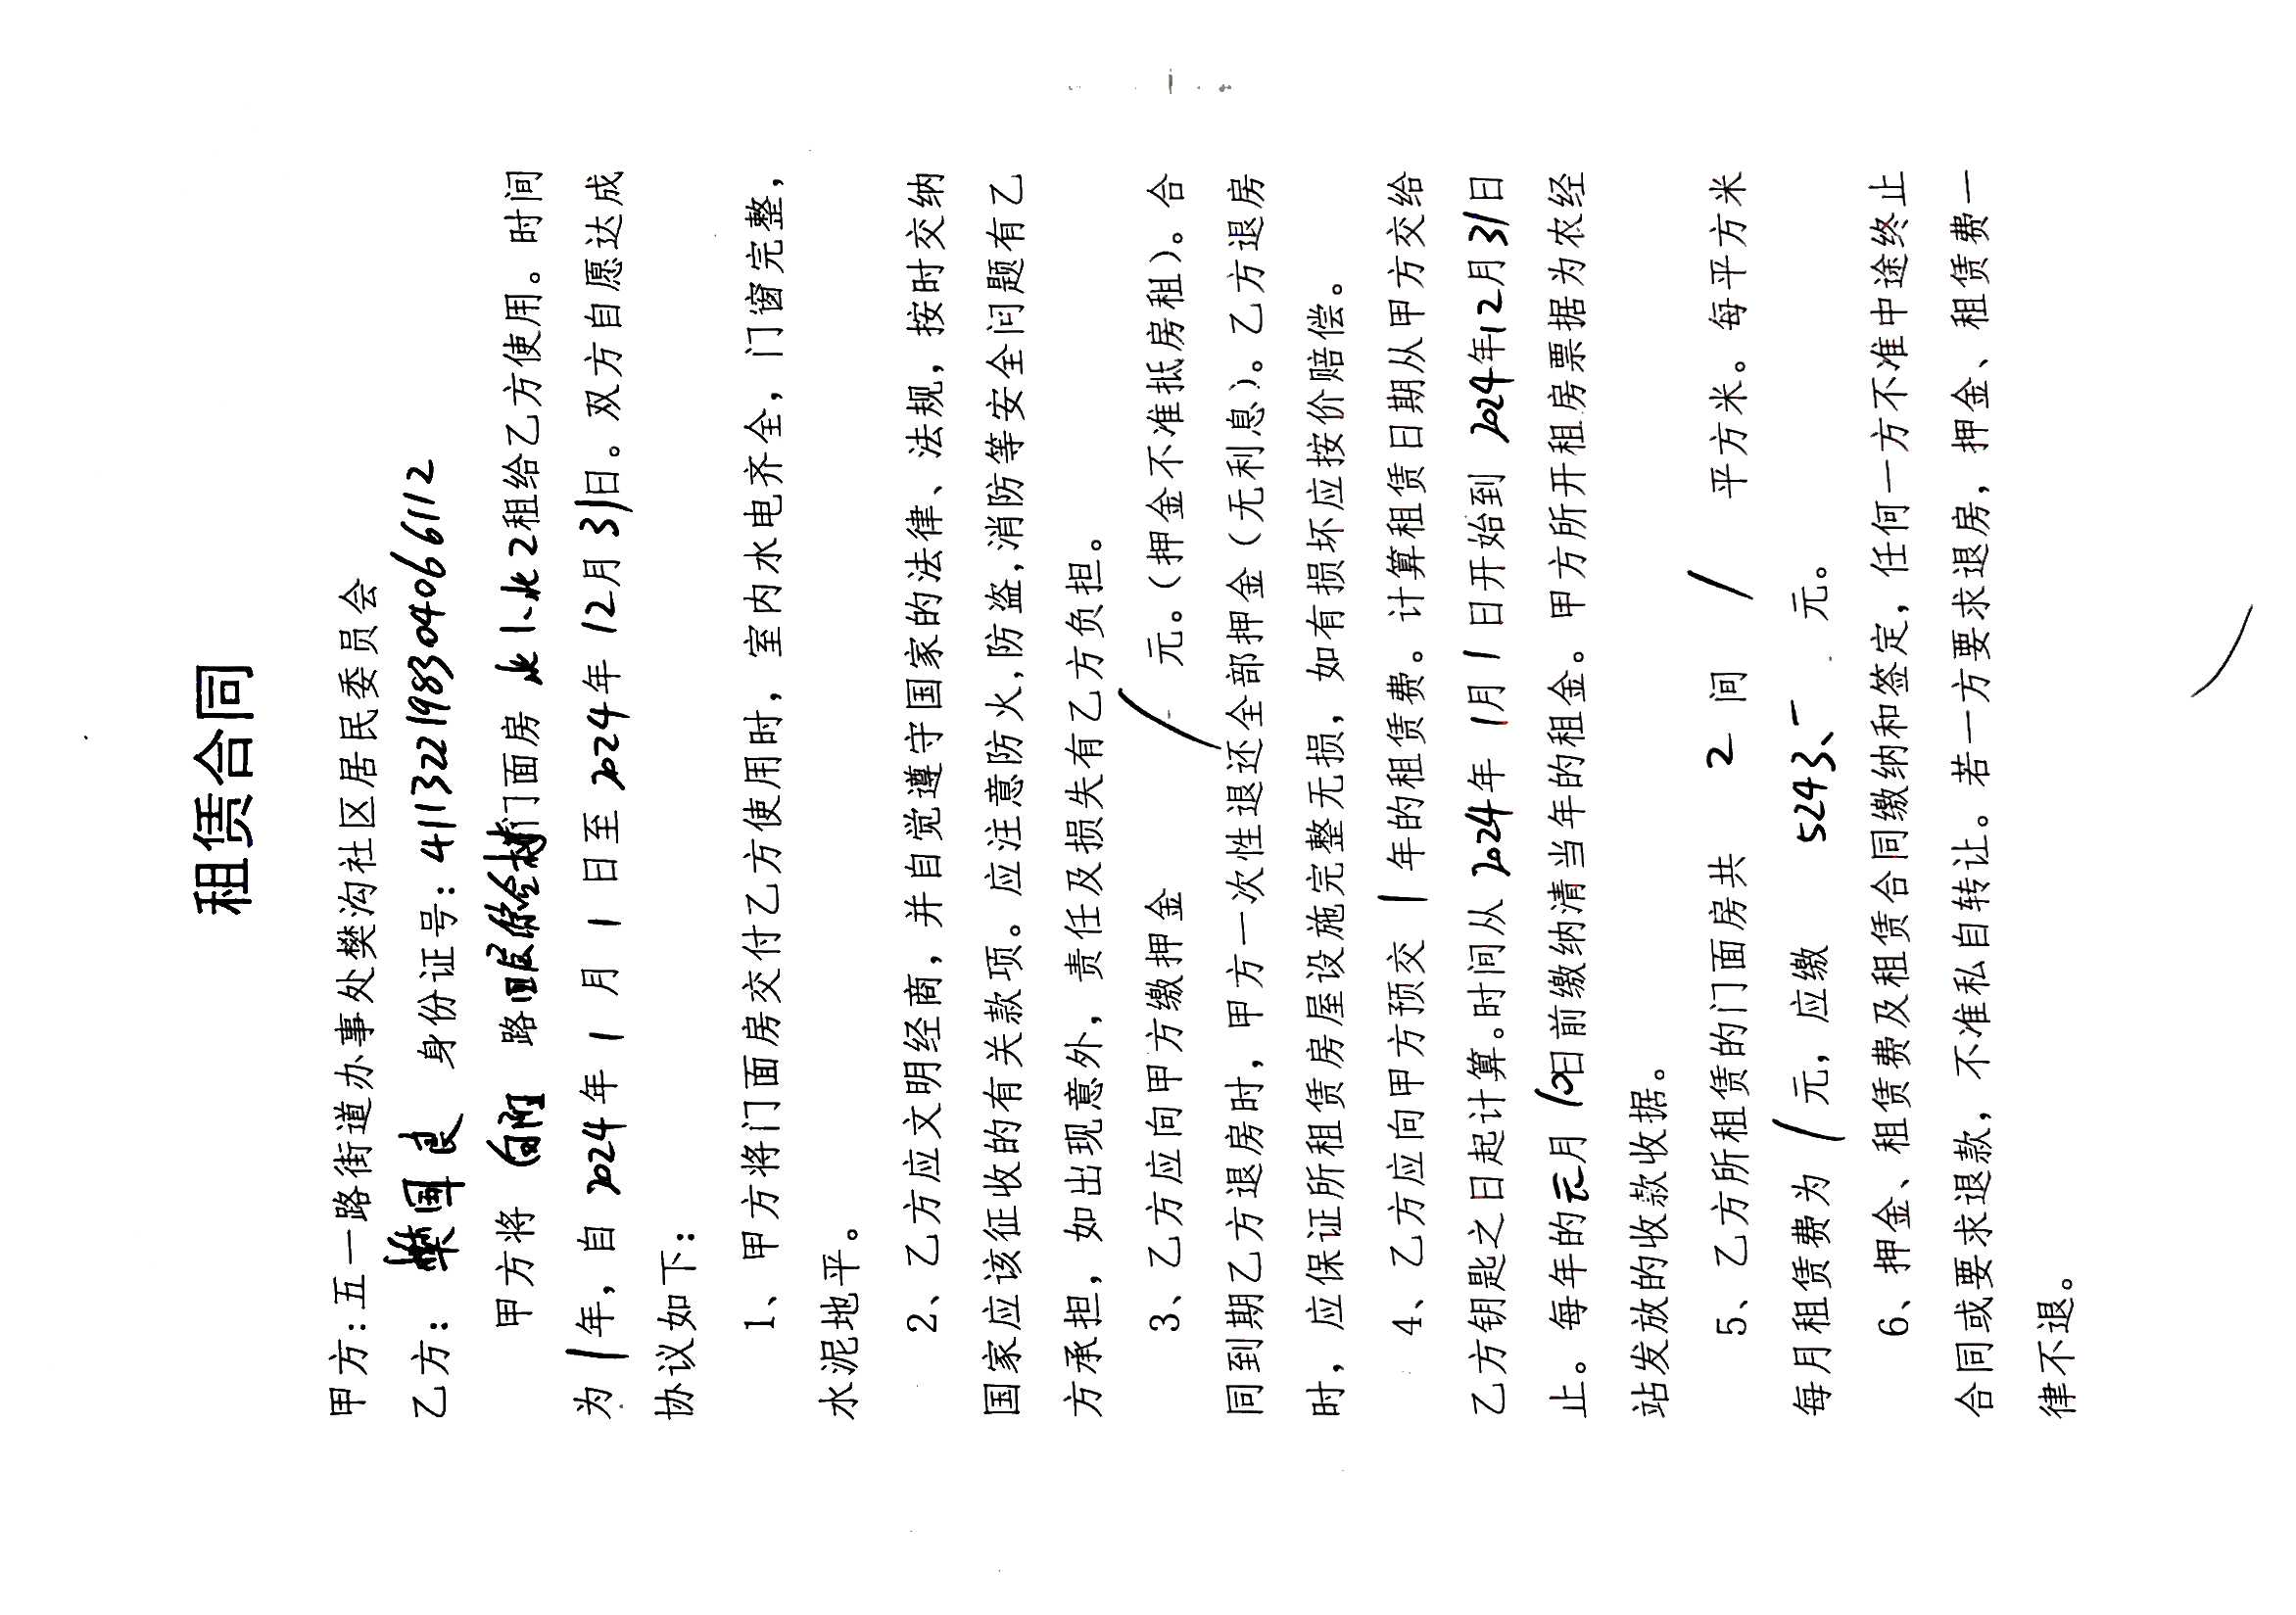 租赁合同
甲方:五一路街道办事处樊沟社区居民委员会
乙方: 樊国良 身份证号:411322198304066112
甲方将 向阳 路 门面房 北1、北2租给乙方使用。时间
为1年,自2024年1月1日至2024年12月31日。双方自愿达成
协议如下:
1、甲方将门面房交付乙方使用时,室内水电齐全,门窗完整,
水泥地平。
2、乙方应文明经商,并自觉遵守国家的法律、法规,按时交纳
国家应该征收的有关款项。应注意防火,防盗,消防等安全问题有乙
方承担,如出现意外,责任及损失有乙方负担。
3、乙方应向甲方缴押金 / 元。(押金不准抵房租)。合
同到期乙方退房时,甲方一次性退还全部押金(无利息)。乙方退房
时,应保证所租赁房屋设施完整无损,如有损坏应按价赔偿。
4、乙方应向甲方预交1年的租赁费。计算租赁日期从甲方交给
乙方钥匙之日起计算。时间从2024年1月1日开始到2024年12月31日
止。每年的元月10日前缴纳清当年的租金。甲方所开租房票据为农经
站发放的收款收据。
5、乙方所租赁的门面房共 2 间 / 平方米。每平方米
每月租赁费为 / 元,应缴 5243、- 元。
6、押金、租赁费及租赁合同缴纳和签定,任何一方不准中途终止
合同或要求退款,不准私自转让。若一方要求退房,押金、租赁费一
律不退。